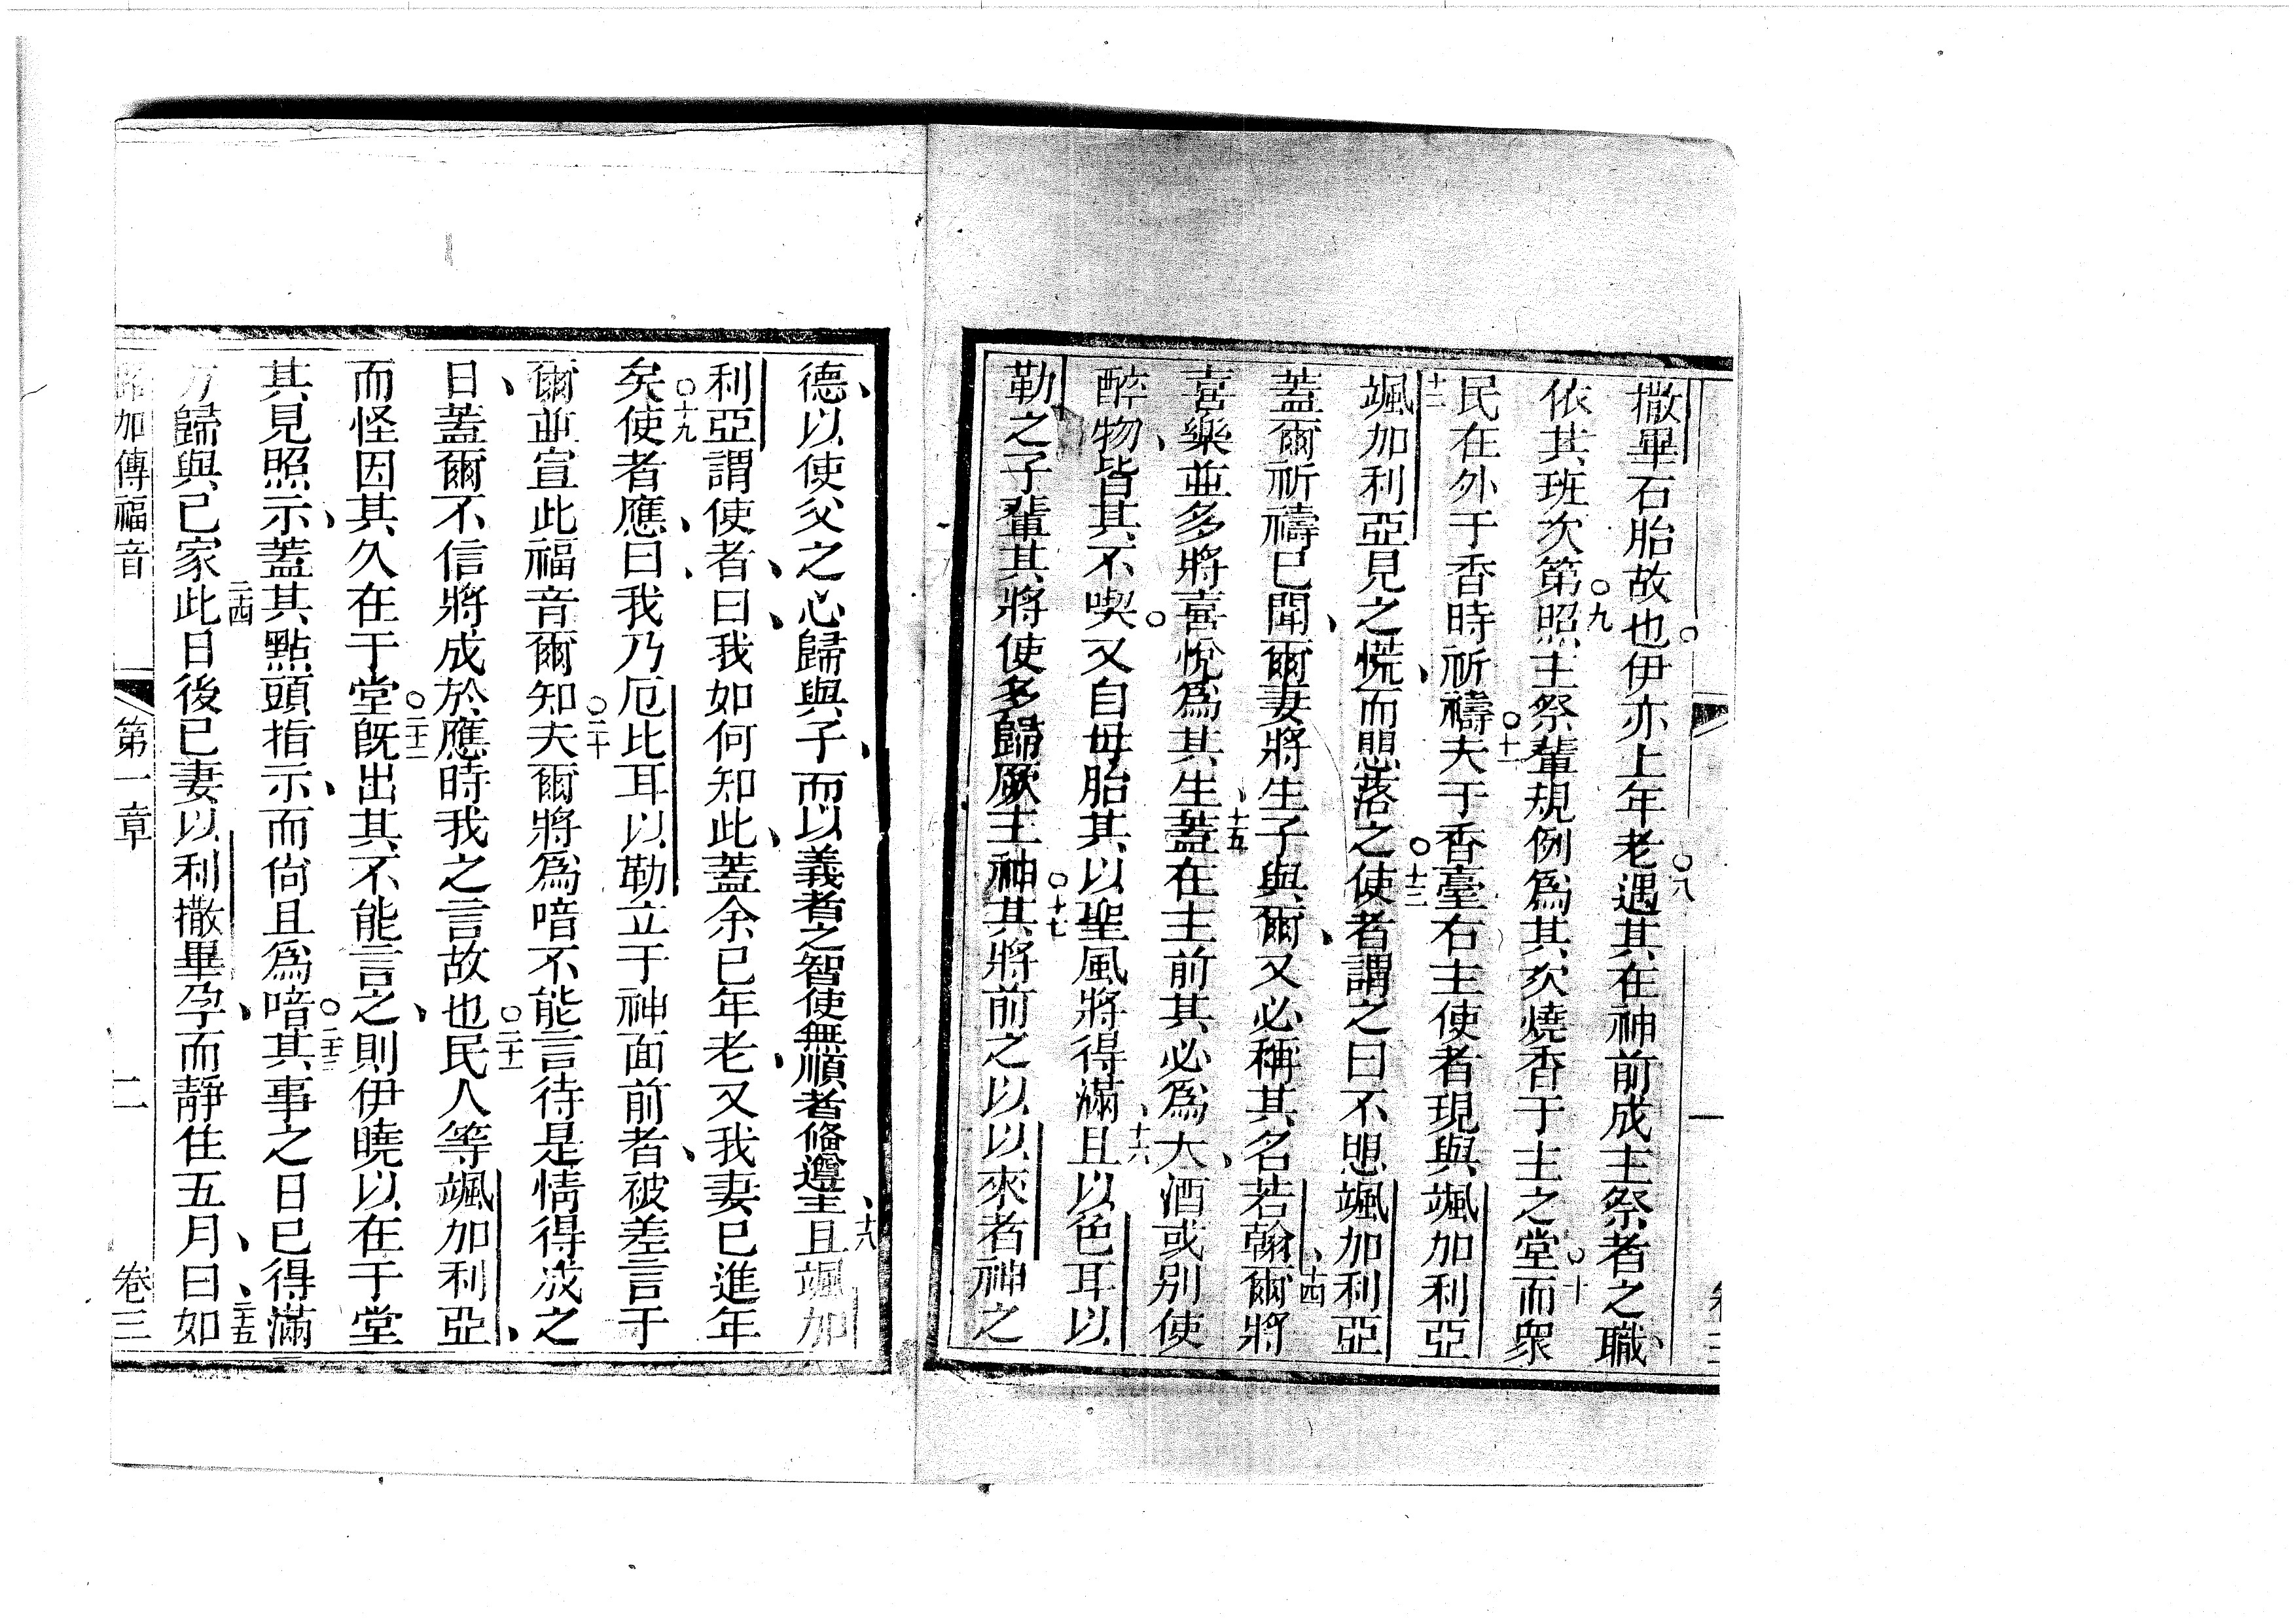 撒畢石胎故也。伊亦上年老。八遇其在神前成主祭者之職、
依其班次第。九照主祭輩規例爲其次燒香于主之堂。十而衆
民在外于香時祈禱。十一夫于香臺右主使者現與颯加利亞
十二颯加利亞見之慌、而思落之。十三使者謂之曰不思颯加利亞
蓋爾祈禱已聞、爾妻將生子與爾、又必稱其名若翰、十四爾將
喜樂並多將喜悅爲其生、十五蓋在主前其必爲大、酒或别使
醉物、皆其不喫。又自母胎其以聖風將得滿、十六且以色耳以
勒之子輩其將使多歸厥主神。十七其將前之以以來者神之
德、以使父之心歸與子、而以義者之智使無順者俻遵主、十八且颯加
利亞謂使者、曰、我如何知此、蓋余已年老、又我妻已進年
矣。十九使者應、曰、我乃厄比耳以勒立于神面前者、被差言于
爾並宣此福音爾知。二十夫爾將爲喑不能言待是情得成之
日、蓋爾不信將成於應時我之言故也。二十一民人等颯加利亞、
而怪因其久在于堂。二十二既出其不能言之、則伊曉以在于堂
其見照示、蓋其點頭指示、而尙且爲喑。二十三其事之日已得滿
方歸與已家。二十四此日後已妻以利撒畢孕、而靜住五月、曰、二十五如
路加傳福音 第一章 二 卷三